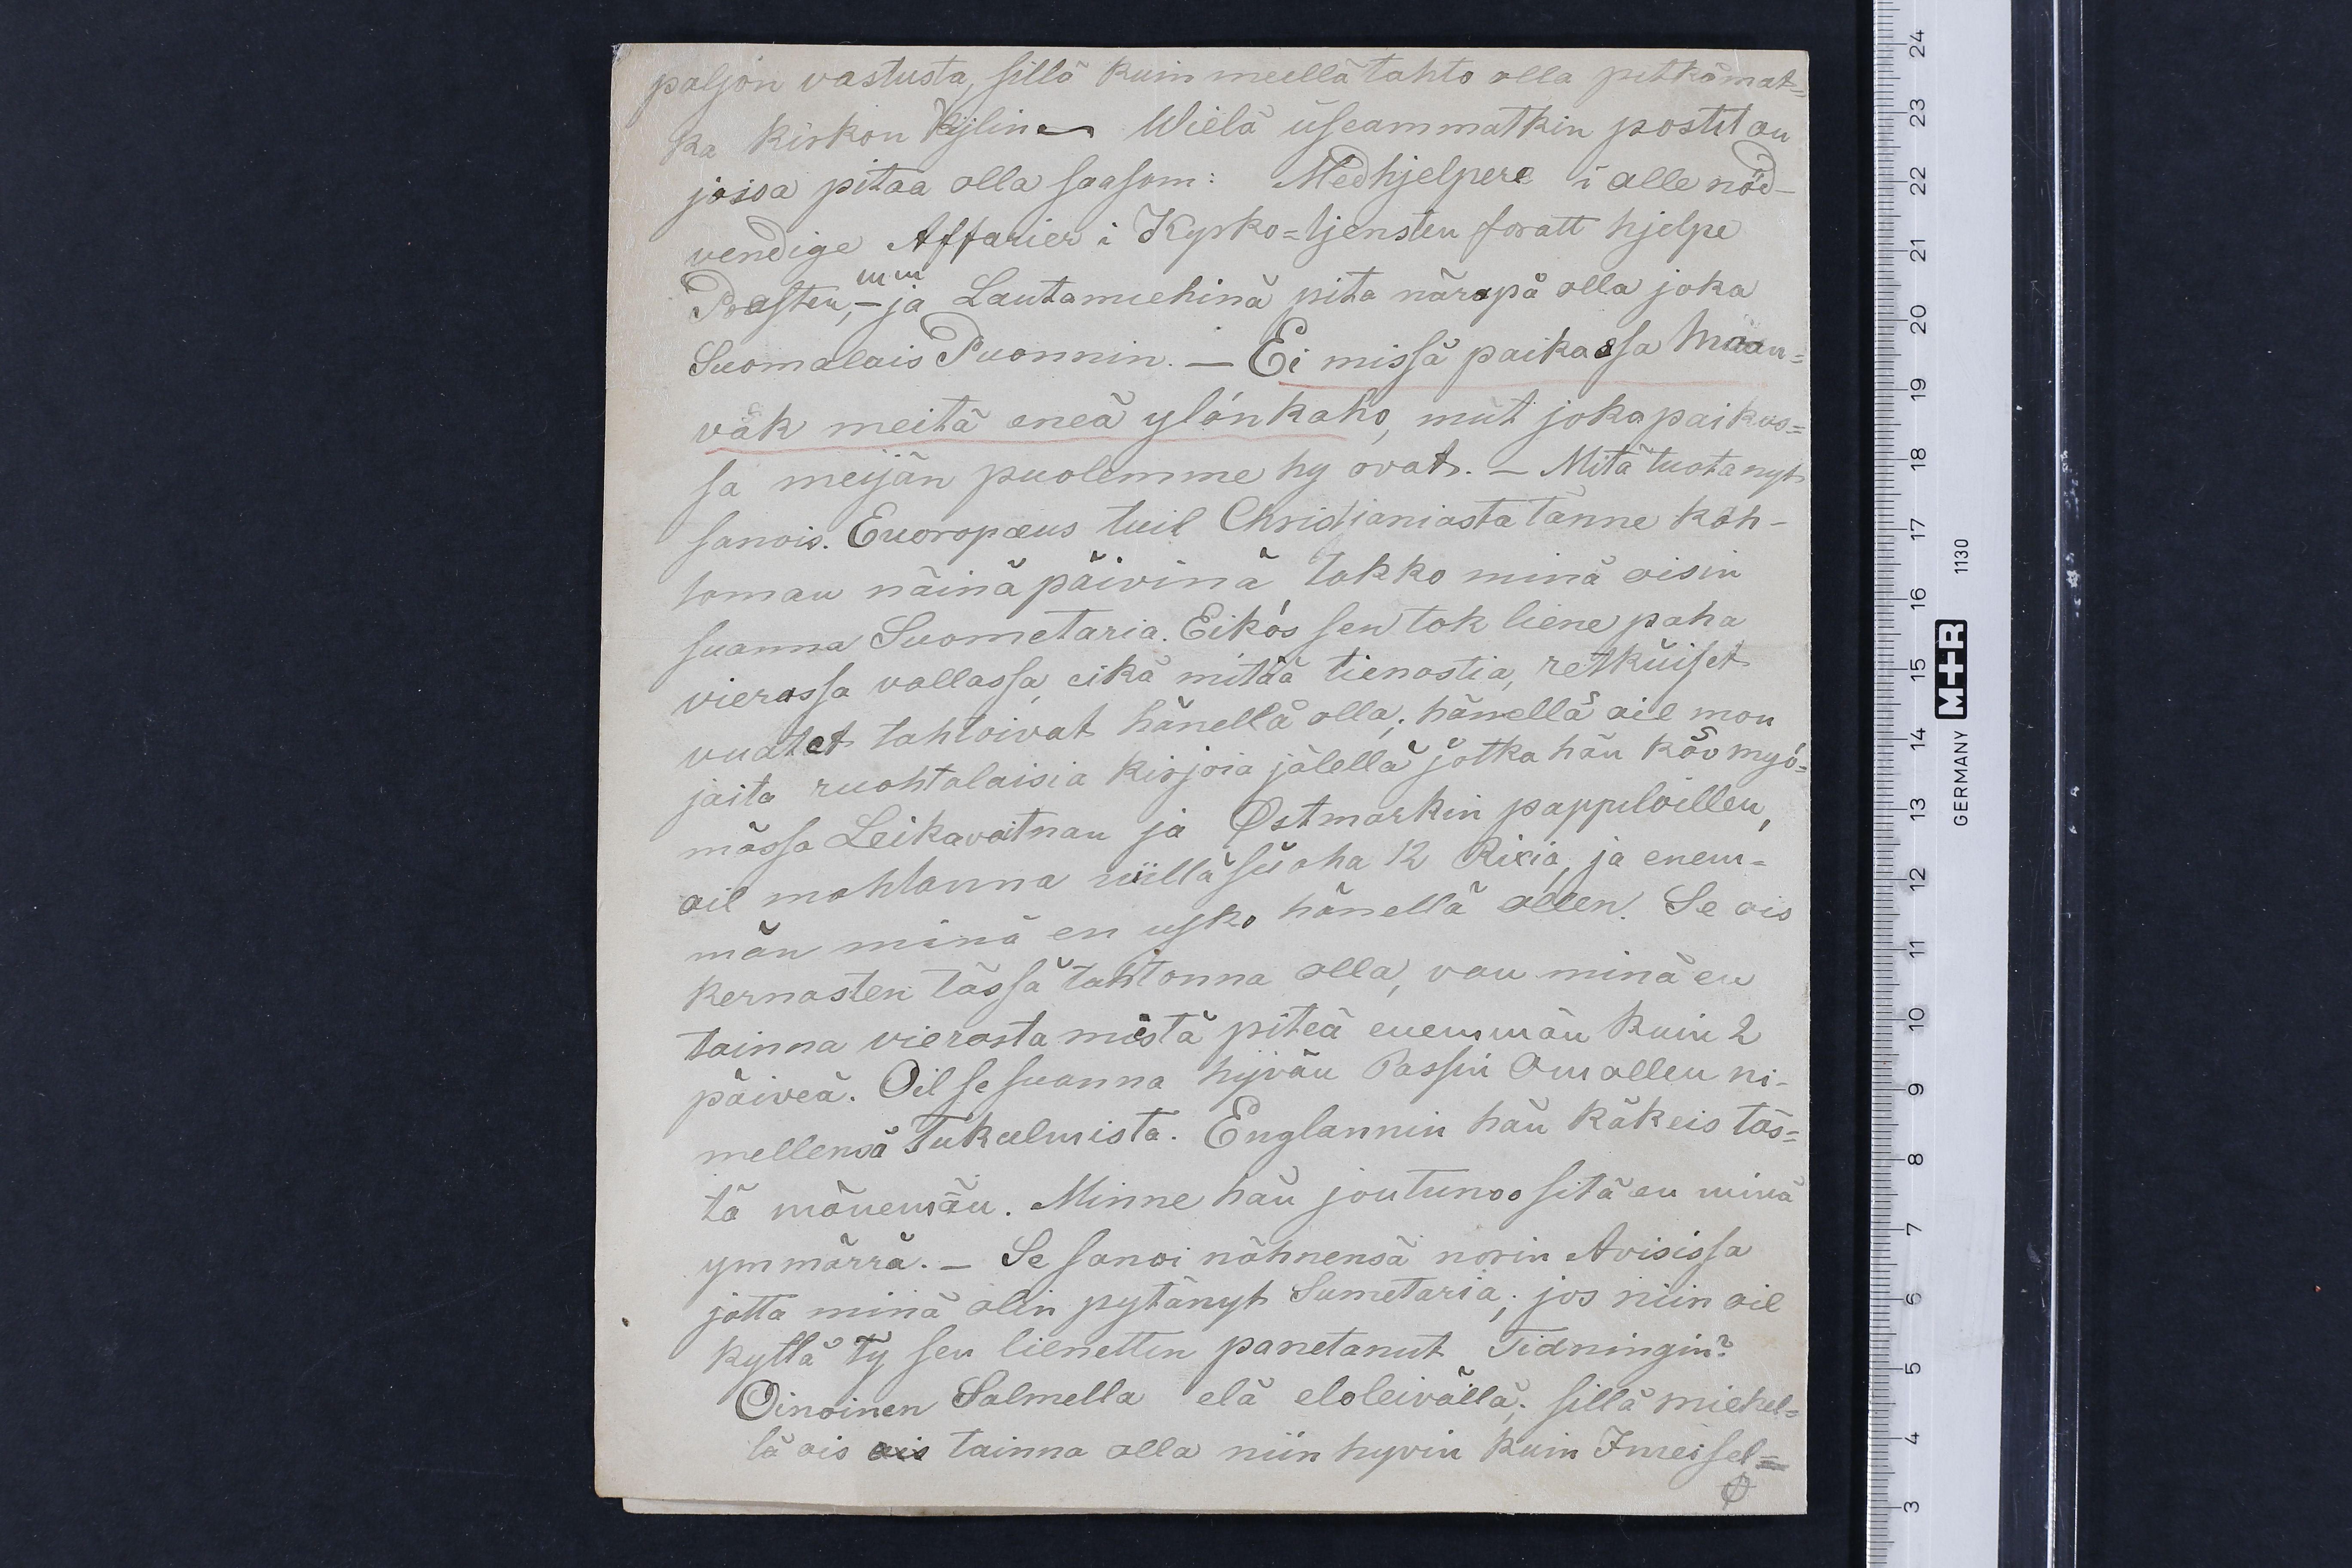 paljon vastusta, sillä kuin meillä tahto olla pitkämat=
ka kirkon Kylin. Wielä üseammatkin postit on
joisa pitaa olla saasom: Medhjelpere i alle nöd-
vendige Affarier i Kyrko=tjensten foratt hjelpe
Prasten, mm – ja Lautamiehinä pita näräpä olla joka
Suomalais Puonnin. – Ei missä paikassa Maan=
väk meitä eneä ylönkaho, mut jokapaikas=
sa meijän puolemme hy ovat. – Mitä tuota nyt
sanois. Euoropæus tuil Christianiasta tänne köh-
toman näinä päivinä, tokko minä oisin
suanna Suometaria. Eikös sen tok liene paha
vierassa vallassa, eikä mitää tienastia, retküiset
vuatet tahtoivat hänellä olla; hänellä ail mon
jaita ruohtalaisia kirjoia jälellä jotka hän käv myö=
mässä Leikavatnan ja Østmarkin pappiloillen,
ail mahtanna niillä suaha 12 Rixiä, ja enem=
män minä en usko hänellä ollen. Se ois
kernasten tässä tahtonna olla, van minä en
tainna vierasta mistä piteä enemmän kuin 2
päiveä. Oil se suanna hyvän Passin Omallen ni-
mellensä Tukulmista. Englannin hän käkeis täs=
tä mänemän. Minne hän joutunoo sitä en minä
ymmärrä. – Se sanoi nähnensä norin Avisissa
jotta minä olin pytänyt Sumetaria; jos niin oil
kyllä Ty sen lienettin panetanut Tidningin?
Oinoinen Salmella elä eloleivällä; sillä miehel=
lä ois tainna olla niin hyvin kuin Imeisel=